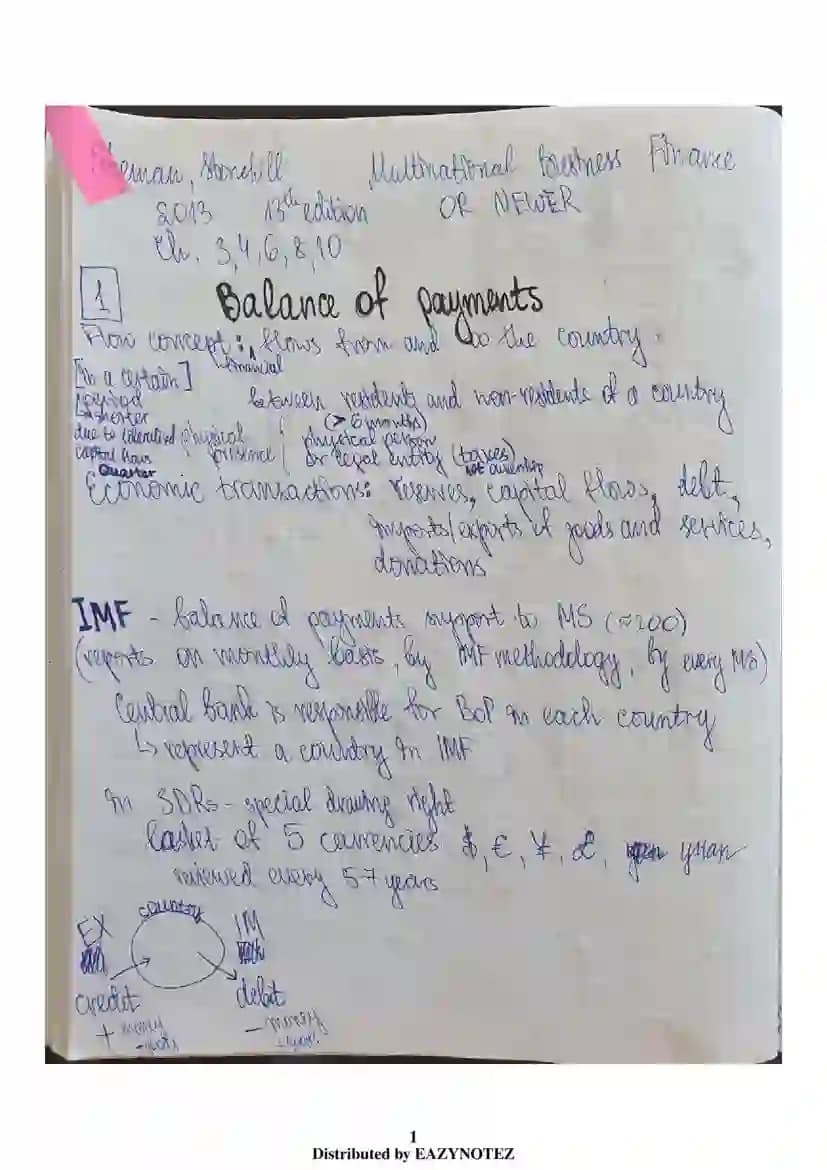 Stonehill Multinational Business Finance
2013 13th edition OR NEWER
Ch. 3,4,6,8,10
1 Balance of payments
Flow concept: flows from and to the country
financial
[in a certain]
period
shorter
due to liberalized
capital flows
Quarter
between residents and non-residents of a country
(> 6 months)
physical presence
physical person
or legal entity (taxes)
not ownership
Economic transactions: reserves, capital flows, debt,
imports/exports of goods and services,
donations
IMF - balance of payments support to MS (≈200)
(reports on monthly basis, by IMF methodology, by every MS)
Central bank is responsible for BoP in each country
↳ represent a country in IMF
in SDRs - special drawing right
basket of 5 currencies $, €, ¥, £, yuan
reviewed every 5-7 years
country
EX IM
credit debit
+ money - money
- goods
1
Distributed by EAZYNOTEZ